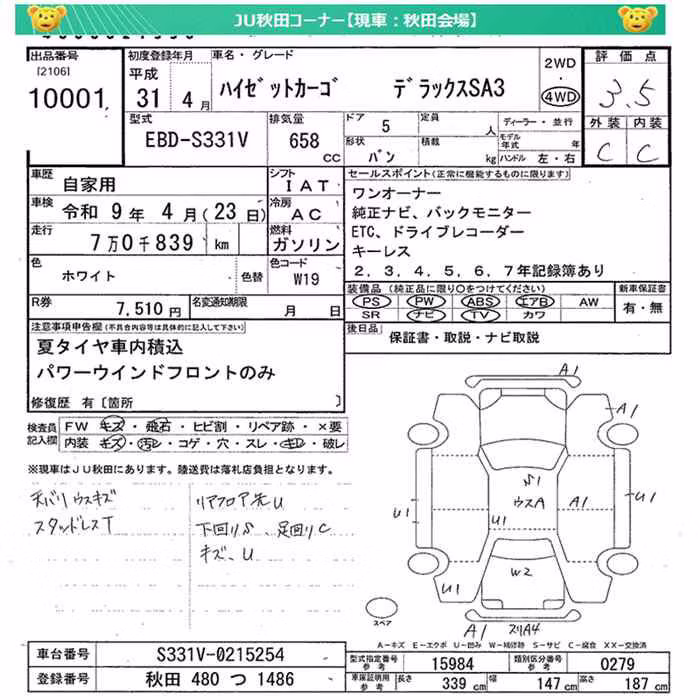 JU秋田コーナー【現車：秋田会場】
出品番号
[2106]
10001
初度登録年月
平成
31 4月
車名・グレード
ハイゼットカーゴ デラックスSA3
2WD
・
4WD
評価点
3.5
外装 内装
C C
型式
EBD-S331V
排気量
658
CC
ドア
5
定員
人
形状
バン
積載
kg
ディーラー・並行
モデル年式
年
ハンドル 左・右
車歴
自家用
シフト
IAT
車検
令和 9年 4月(23日)
冷房
AC
走行
7万0千839 km
燃料
ガソリン
色
ホワイト
色替
色コード
W19
R券
7,510円
名変通知期限
月 日
セールスポイント(正常に機能するものに限ります)
ワンオーナー
純正ナビ、バックモニター
ETC、ドライブレコーダー
キーレス
2、3、4、5、6、7年記録簿あり
装備品(純正品に限り○をつけてください)
PS PW ABS エアB AW
SR ナビ TV カワ
新車保証書
有・無
後日品
保証書・取説・ナビ取説
注意事項申告欄(不具合内容等は具体的に記入して下さい)
夏タイヤ車内積込
パワーウインドフロントのみ
修復歴 有〔箇所 〕
検査員記入欄
FW キズ・飛石・ヒビ割・リペア跡・×要
内装 キズ・汚レ・コゲ・穴・スレ・キレ・破レ
※現車はJU秋田にあります。陸送費は落札店負担となります。
天バリウスキズ
スタッドレスT
リアフロア先U
下回りS、足回りC
キズ、U
A1
A1
S1
ウスA
A1
U1
U1
U1
U1
W2
A1
スリA4
スペア
A-キズ E-エクボ U-凹み W-補修跡 S-サビ C-腐食 XX-交換済
車台番号
S331V-0215254
登録番号
秋田 480 つ 1486
型式指定番号
15984
類別区分番号
0279
車庫証明用参考
長さ
339 cm
幅
147 cm
高さ
187 cm